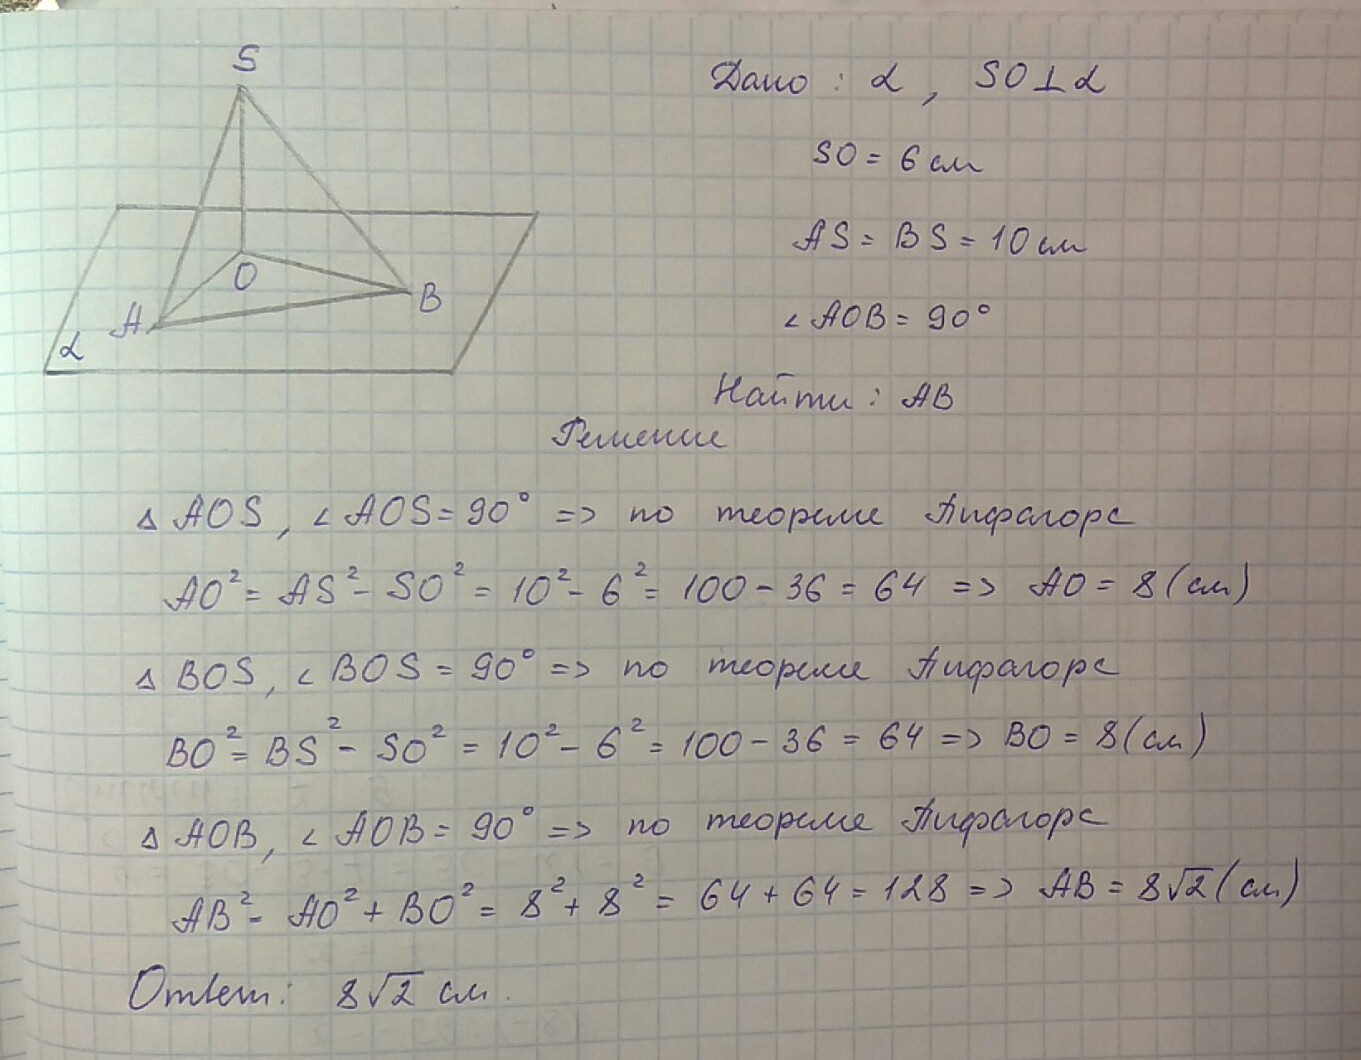 S
O
A
B
α
Дано : α , SO⊥α
SO = 6 см
AS = BS = 10 см
∠AOB = 90°
Найти : AB
Решение
△ AOS , ∠AOS = 90° => по теореме Пифагора
AO² = AS² - SO² = 10² - 6² = 100 - 36 = 64 => AO = 8 (см)
△ BOS , ∠BOS = 90° => по теореме Пифагора
BO² = BS² - SO² = 10² - 6² = 100 - 36 = 64 => BO = 8 (см)
△ AOB , ∠AOB = 90° => по теореме Пифагора
AB² = AO² + BO² = 8² + 8² = 64 + 64 = 128 => AB = 8√2 (см)
Ответ : 8√2 см.